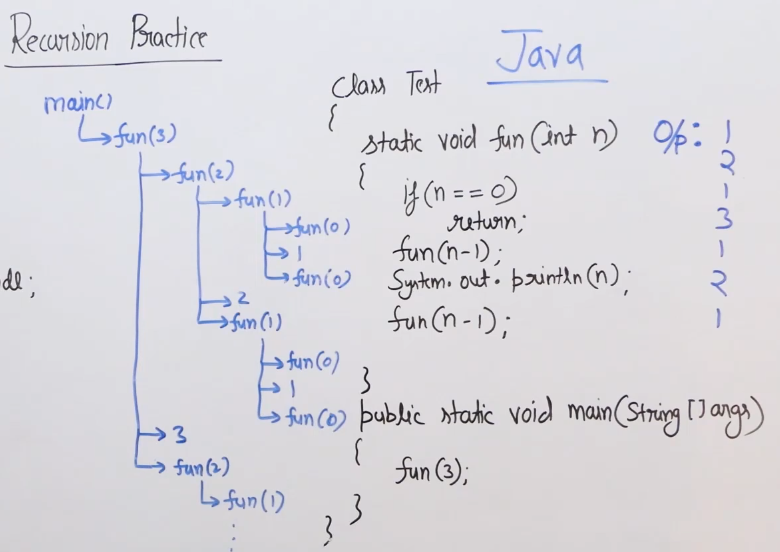 Recursion Practice
main()
fun(3)
fun(2)
fun(1)
fun(0)
1
fun(0)
2
fun(1)
fun(0)
1
fun(0)
3
fun(2)
fun(1)
de;
Java
Class Test
{
static void fun(int n)
{
if(n==0)
return;
fun(n-1);
System.out.println(n);
fun(n-1);
}
public static void main(String []args)
{
fun(3);
}
}
O/p: 1
2
1
3
1
2
1